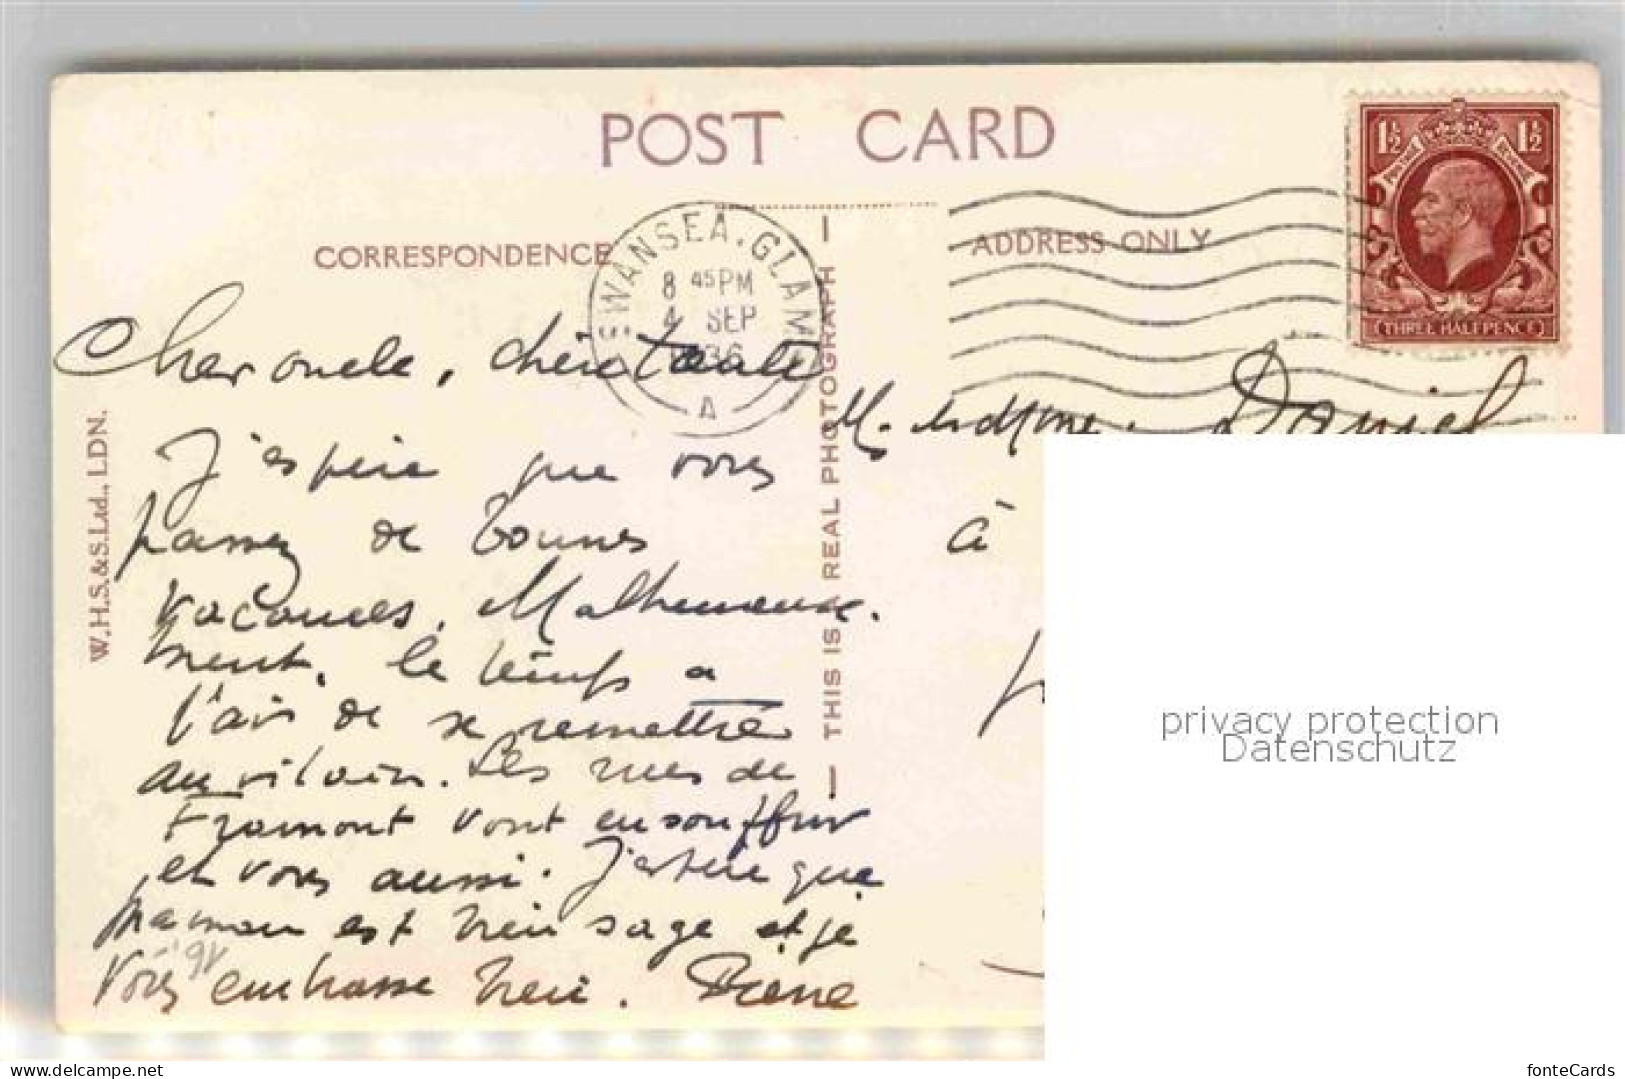 POST CARD
CORRESPONDENCE
ADDRESS ONLY
SWANSEA. GLAM
8 45PM
4 SEP
36
A
1½ 1½
POSTAGE REVENUE
THREE HALFPENCE
THIS IS REAL PHOTOGRAPH
W.H.S.&S.Ltd., LDN.
Cher oncle, chère tante
J'espère que vous
passez de bonnes
vacances. Malheureuse-
ment, le temps a
l'air de se remettre
au vilain. Les rues de
Framont vont en souffrir
et vous aussi. J'espère que
maman est bien sage et je
vous embrasse bien. Pierre
M. et Mme. Daniel
à
privacy protection
Datenschutz
fonteCards